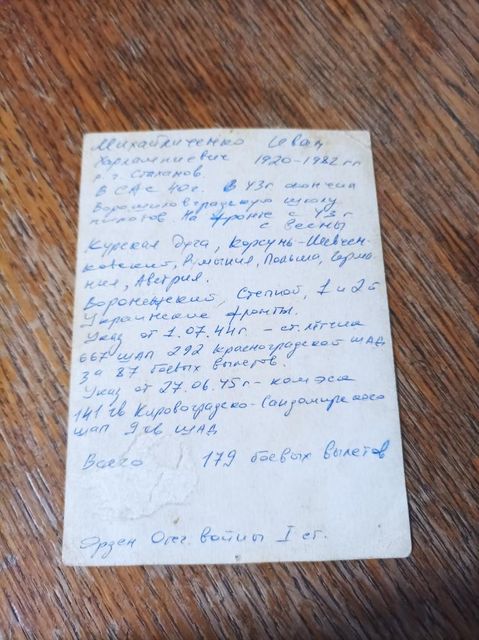 Михайличенко Иван
Харлампиевич 1920-1982 гг
р. г. Стаханов.
В СА с 40г. В 43г окончил
Ворошиловградскую школу
пилотов. На фронте с 43 г
с весны
Курская Дуга, Корсунь-Шевчен-
ковский, Румыния, Польша, Герма-
ния, Австрия.
Воронежский, Степной, 1 и 2 й
Украинские фронты.
Указ от 1.07.44г. - ст. лётчик
667 ШАП 292 Красноградской ШАД
за 87 боевых вылетов.
Указ от 27.06.45г - комэск
141 гв Кировоградско-Сандомирского
шап 9 гв ШАД
Всего 179 боевых вылетов
Орден Отеч. войны I ст.